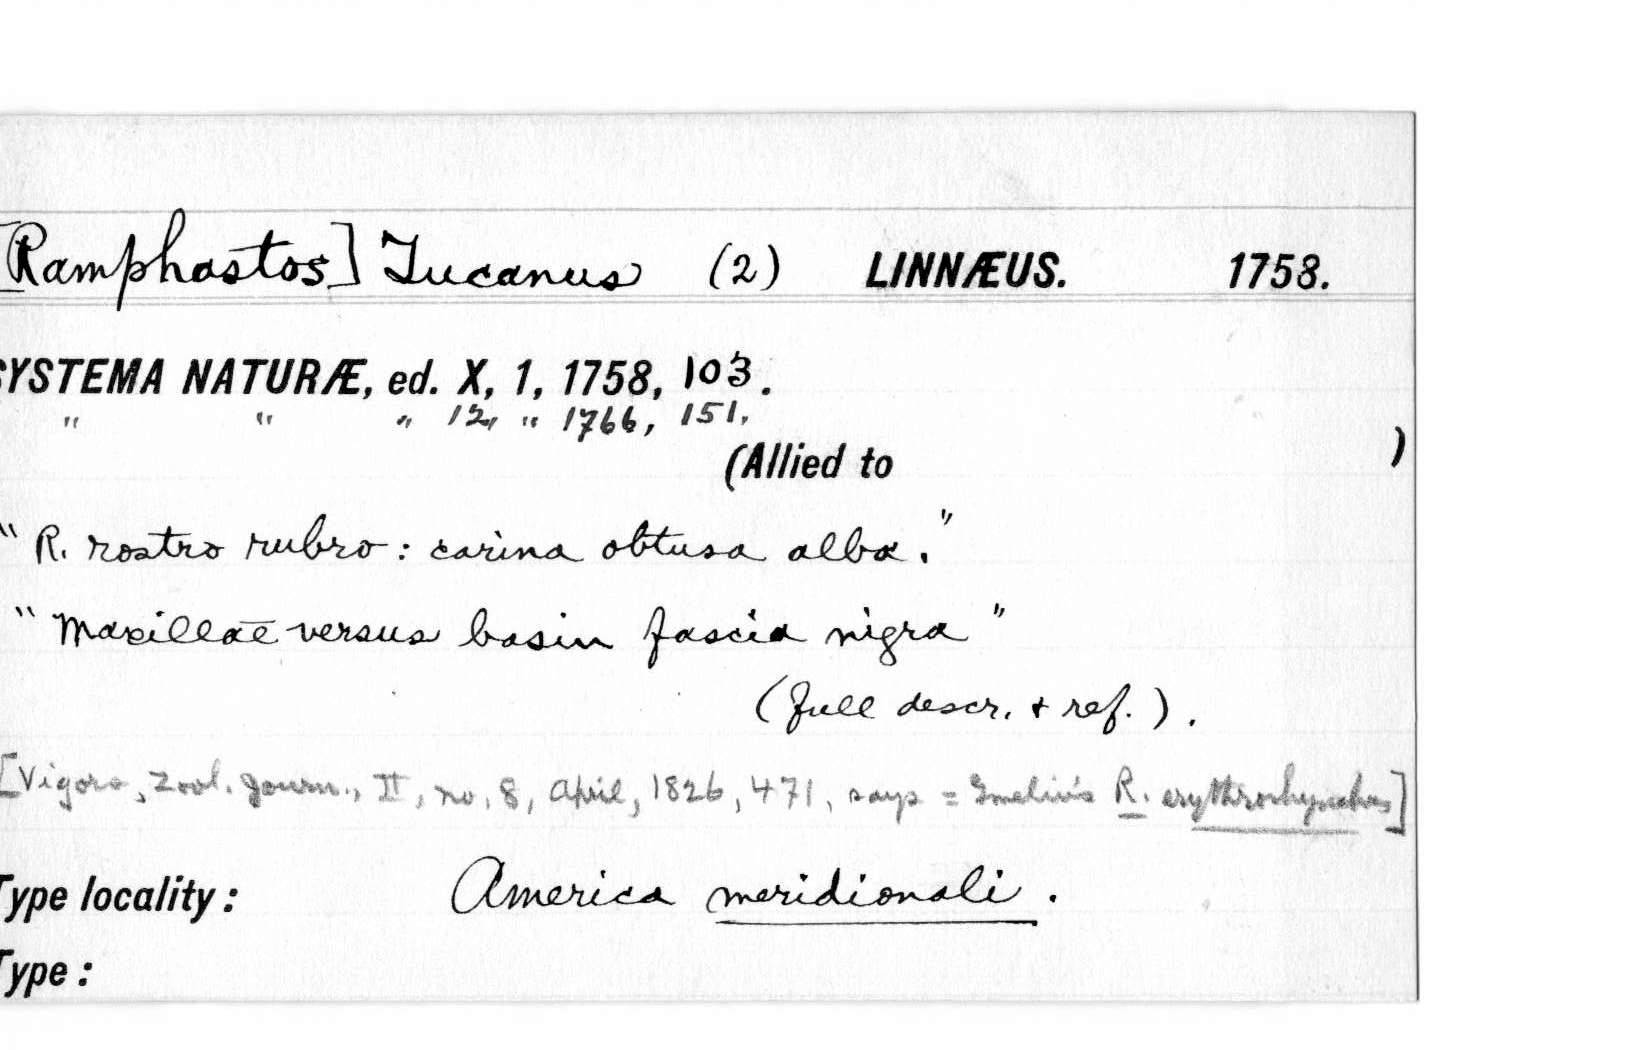 [Ramphastos] Tucanus (2) LINNÆUS. 1758.
SYSTEMA NATURÆ, ed. X, 1, 1758, 103.
" " " 12, " 1766, 151.
(Allied to )
"R. rostro rubro: carina obtusa alba."
"Maxillae versus basin fascia nigra"
(full descr. + ref.).
[Vigors, Zool. Journ., II, no. 8, April, 1826, 471, says = Gmelin's R. erythrorhynchus]
Type locality: America meridionali.
Type: